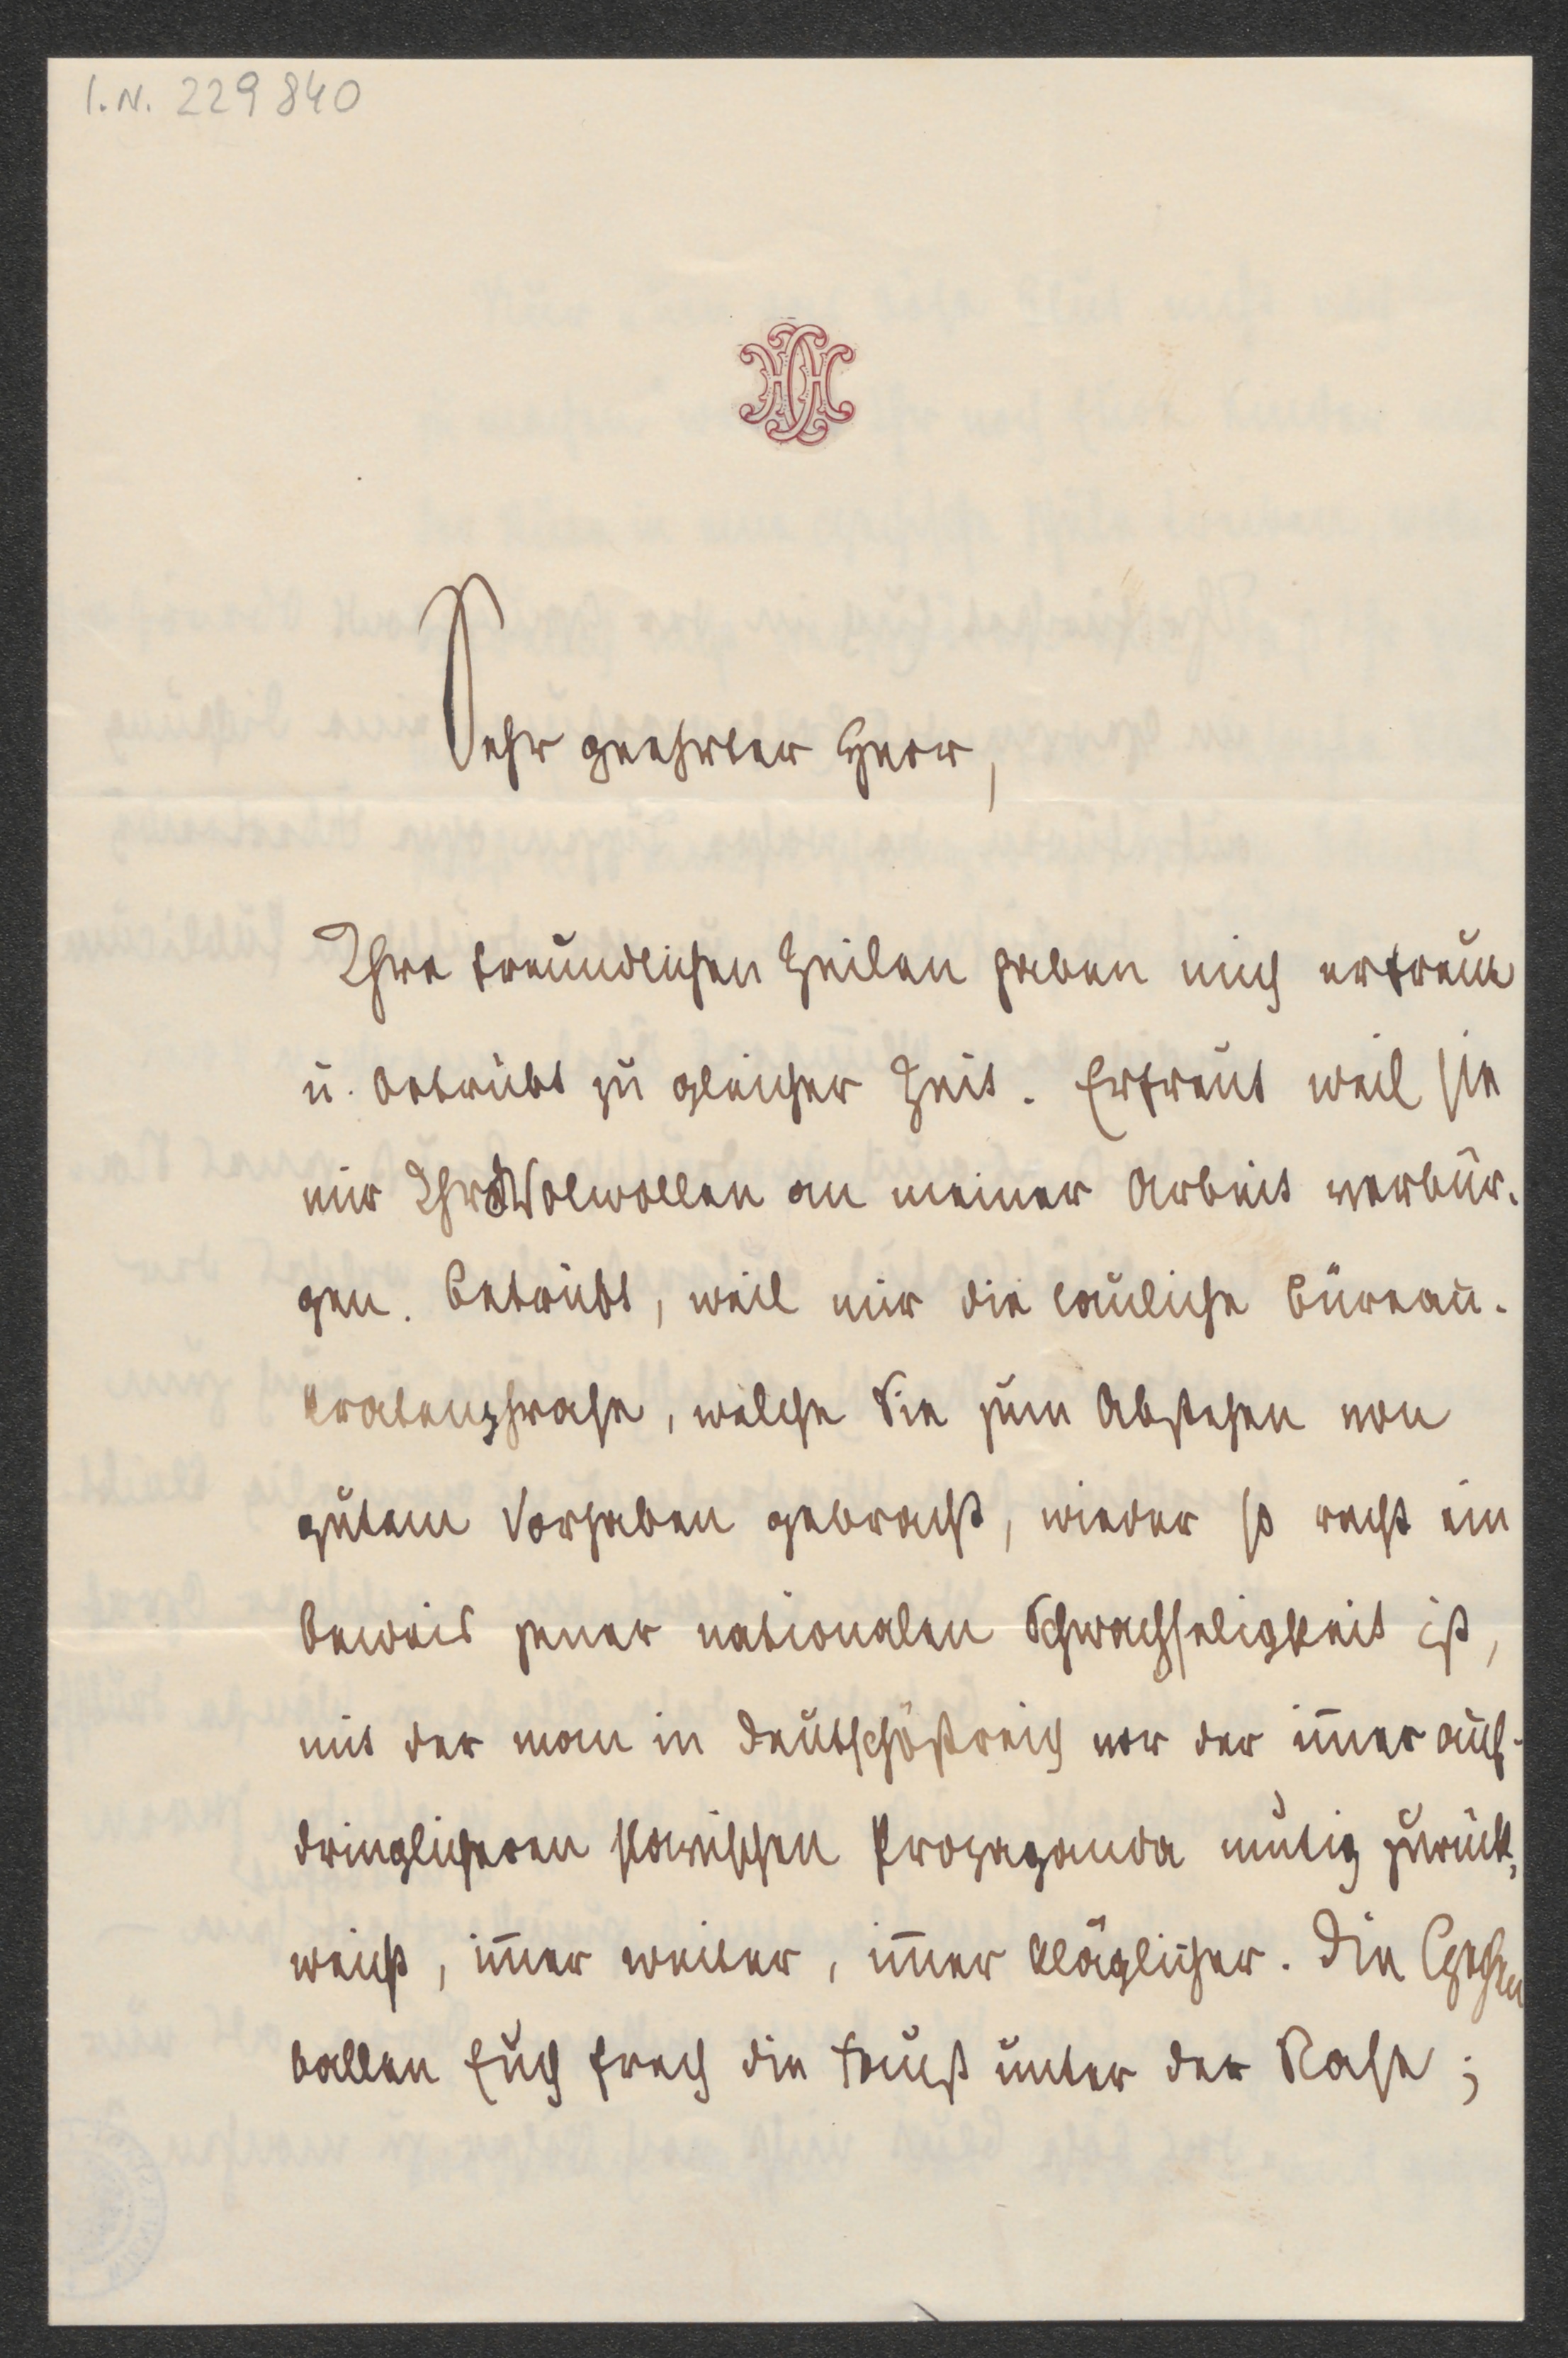 I.N. 229840
Sehr geehrter Herr,
Ihre freundlichen Zeilen haben mich erfreut
u. betrübt zu gleicher Zeit. Erfreut weil sie
mir Ihr Wolwollen an meiner Arbeit verbür-
gen. Betrübt, weil mir die lauliche Büreau-
kratenphrase, welche Sie zum Abstehen von
gutem Vorhaben gebracht, wieder so recht ein
Beweis jener nationalen Schwachseligkeit ist,
mit der man in Deutschöstreich vor der im̄er auf-
dringlicheren slawischen Propaganda mutig zurück-
weicht, im̄er weiter, im̄er kläglicher. Die Czechen
ballen Euch frech die Faust unter der Nase;